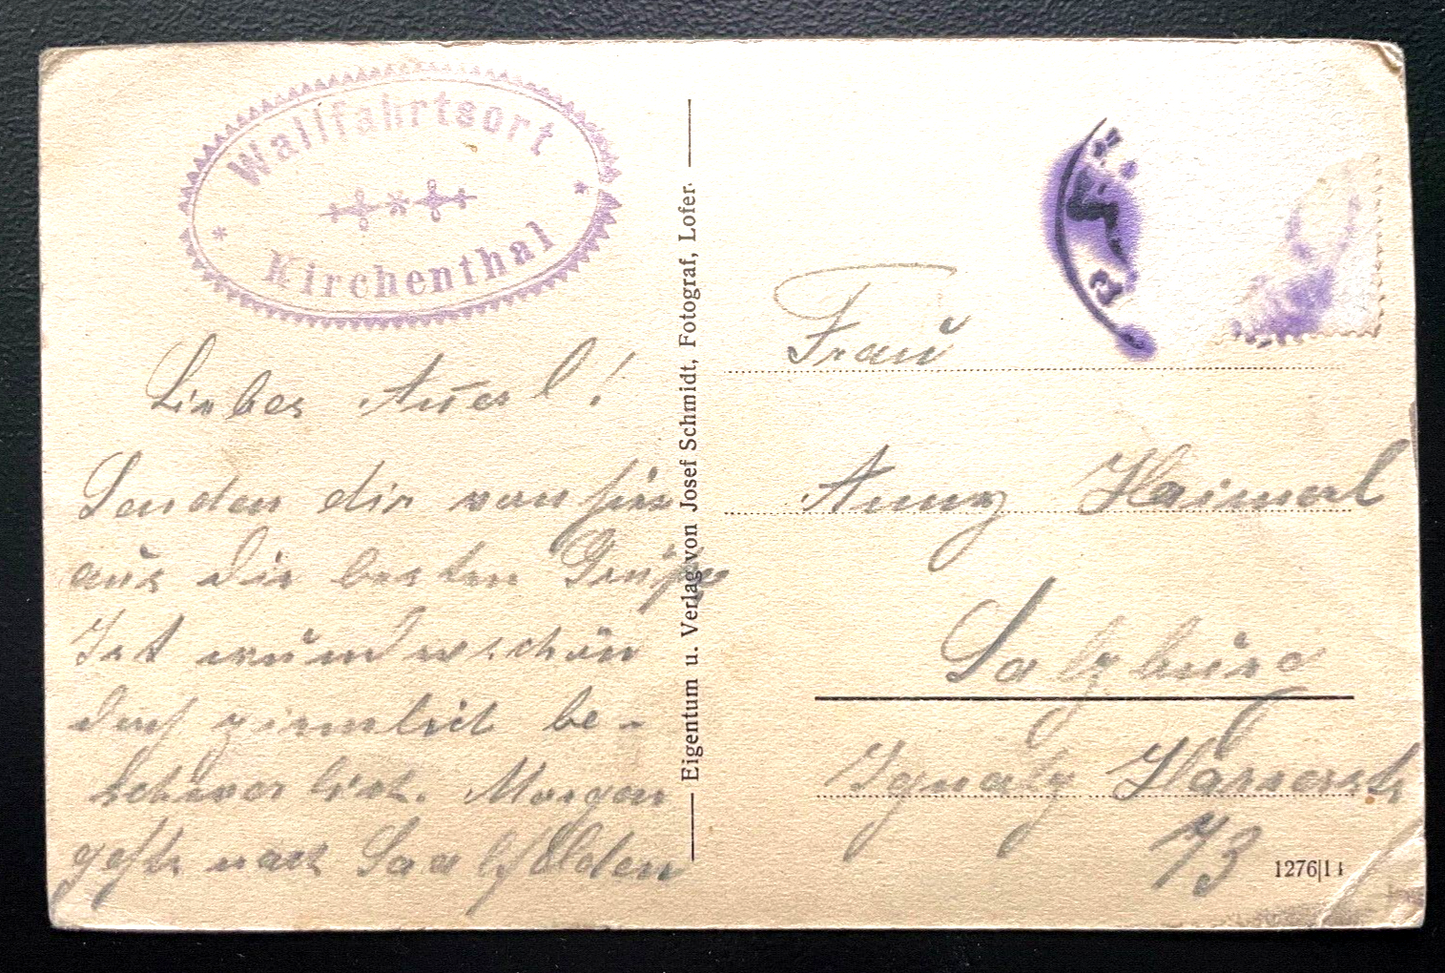 Wallfahrtsort
Kirchenthal
Liebes Annerl!
Senden dir von hier
aus die besten Grüße
Ist wunderschön
doch ziemlich be-
schwerlich. Morgen
gehts nach Saalfelden
Eigentum u. Verlag von Josef Schmidt, Fotograf, Lofer.
Frau
Anny Haimerl
Salzburg
Ignatz Harrerstr
73
1276|14